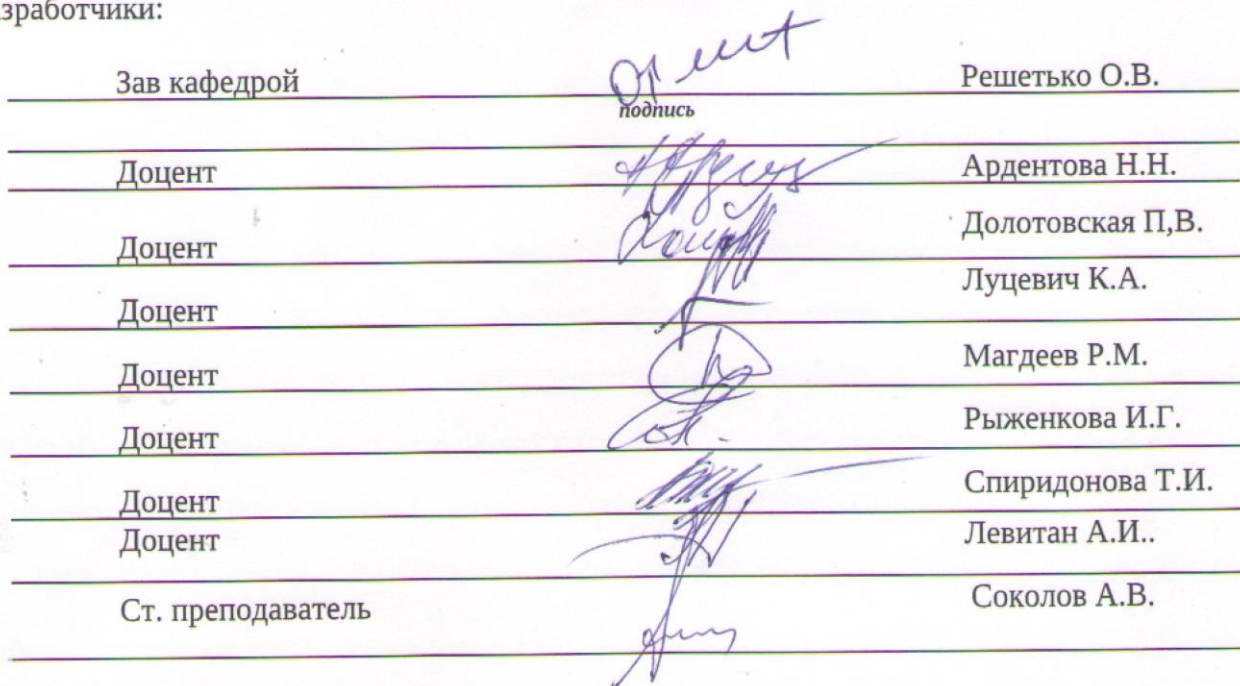 зработчики:
Зав кафедрой Решетько О.В.
подпись
Доцент Ардентова Н.Н.
Доцент Долотовская П,В.
Доцент Луцевич К.А.
Доцент Магдеев Р.М.
Доцент Рыженкова И.Г.
Доцент Спиридонова Т.И.
Доцент Левитан А.И..
Ст. преподаватель Соколов А.В.